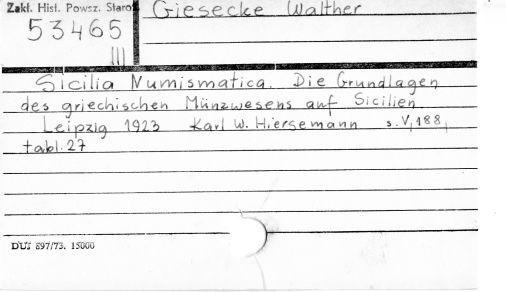 Zakł. Hist. Powsz. Staroż
Giesecke Walther
53465
III
Sicilia Numismatica. Die Grundlagen
des griechischen Münzwesens auf Sicilien.
Leipzig 1923 Karl W. Hiersemann s. V, 188,
tabl. 27
DUJ 897/73. 15000